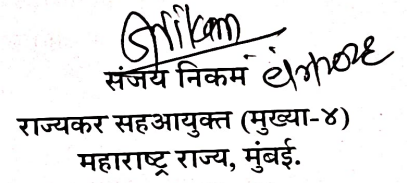 संजय निकम
राज्यकर सहआयुक्त (मुख्या-४)
महाराष्ट्र राज्य, मुंबई.